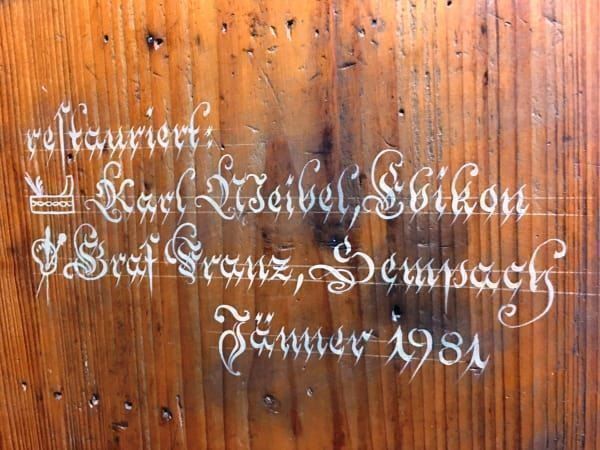 restauriert:
Karl Weibel, Ebikon
Graf Franz, Sempach
Jänner 1981